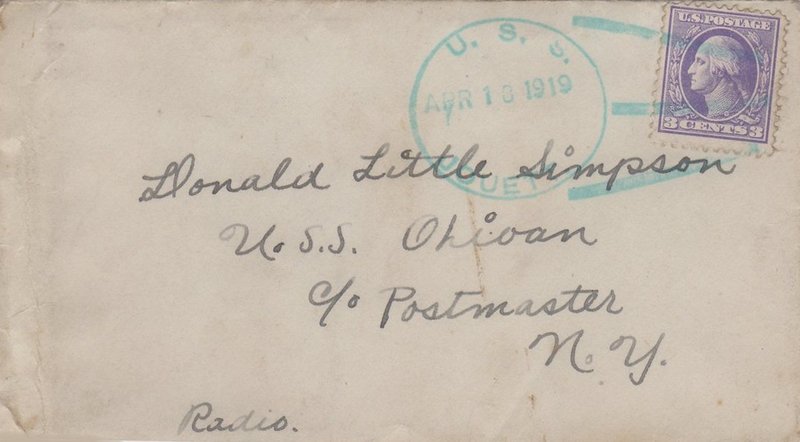 U. S. S.
APR 13 1919
U.S. POSTAGE
3 CENTS 3
Donald Little Simpson
U.S.S. Ohioan
c/o Postmaster
N.Y.
Radio.